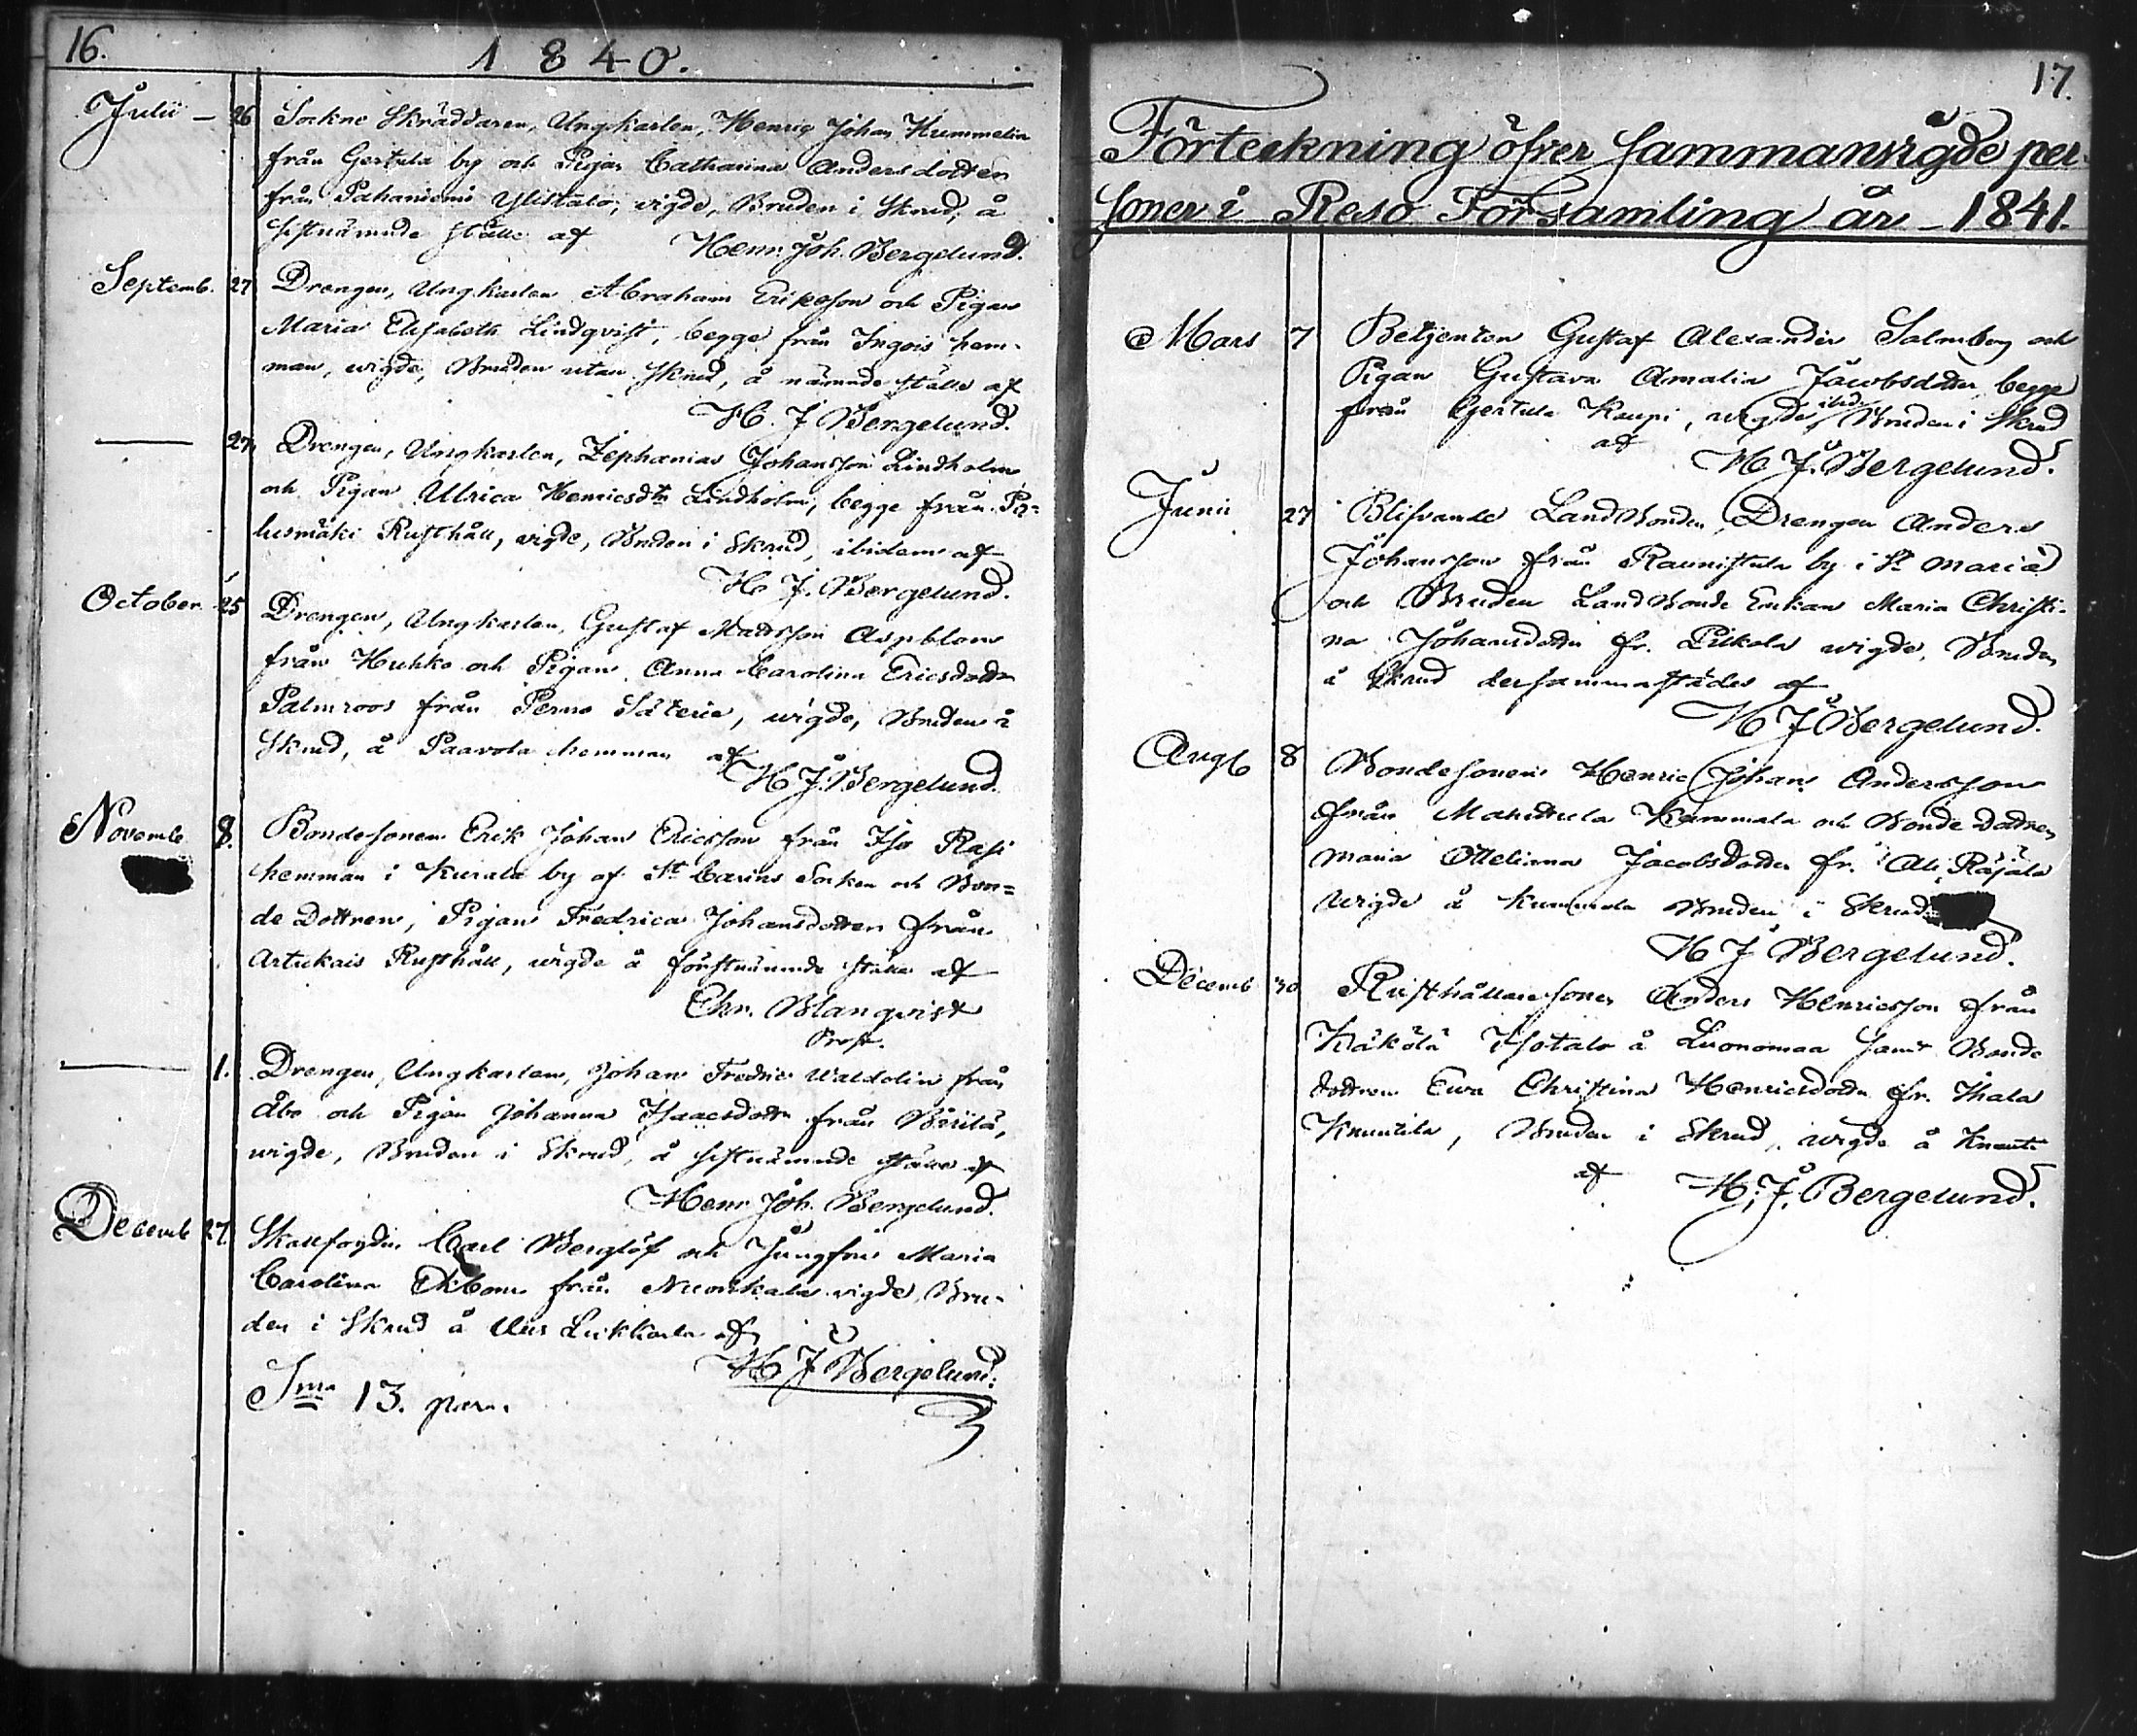 16.
1840.
Julii - 26 Sockne Skräddaren, Ungkarlen, Henrig Johan Kummelin
från Gertula by och Pigan Catharina Andersdotter
från Pahaniemi Ylistalo, vigde, Bruden i Skrud, å
sistnämnde ställe af Henr. Joh. Bergelund.
Septemb. 27 Drengen, Ungkarlen Abraham Eriksson och Pigan
Maria Elisabeth Lindqvist, begge från Ingois hem-
man, vigde, Bruden utan Skrud, å nämnde ställe af
H. J. Bergelund.
27. Drengen, Ungkarlen, Zephanias Johansson Lindholm
och Pigan Ulrica Henricsdtr Lindholm, begge från Pa-
lusmäki Rusthåll, vigde, Bruden i Skrud, ibidem af
H. J. Bergelund.
October 25 Drengen, Ungkarlen, Gustaf Mattsson Aspblom
från Huhko och Pigan Anna Carolina Ericsdottr
Palmroos från Perno Säterie, vigde, Bruden i
Skrud, å Paavola hemman af
H. J. Bergelund.
Novemb 8. Bondesonen Erik Johan Ericsson från Iso Rasi
hemman i Kurala by af St Carins Socken och Bon-
de Dottren, Pigan Fredrica Johansdotter från
Artukais Rusthåll, vigde å förstnämnde ställe af
Chr. Blanqvist
Prost.
1. Drengen, Ungkarlen, Johan Fredric Waldolin från
Åbo och Pigan Johanna Isaacsdottr från
vigde, Bruden i Skrud, å sistnämnde ställe af
Henr. Joh. Bergelund.
Decemb 27. Skallfogden Carl Berglöf och Jungfru Maria
Carolina Ekbom från Nuorikala vigde, Bru-
den i Skrud å Uus Lukkarla af
H. J. Bergelund.
Sma 13. par.
17.
Förteckning öfver sammanvigde per-
soner i Reso Församling år 1841.
Mars 7 Betjenten Gustaf Alexander Salmberg och
Pigan Gustava Amalia Jacobsdotter, begge
från Gertula Kaupi, vigde ibid. Bruden i Skrud
af H. J. Bergelund.
Junii 27 Blifvande LandBonden, Drengen Anders
Johansson från Raunistula by i St Mariæ
och Bruden LandBonde Enkan Maria Christi-
na Johansdotter fr. Piikola vigde, Bruden
i Skrud dersammastädes af
H. J. Bergelund.
Aug. 8 Bondesonen Henric Johan Andersson
från Kummala och Bonde Dottren
Maria Ottelinna Jacobsdotter fr. Ali Räjälä
vigde å Kummala Bruden i Skrud
H. J. Bergelund.
Decemb 30 Rusthållaresonen Anders Henricsson från
Käkölä Isotalo å Luonomaa samt Bonde
dottren Ewa Christina Henricsdotter fr. Ihala
Knuutila, Bruden i Skrud, vigde å Knuuti
af H. J. Bergelund.